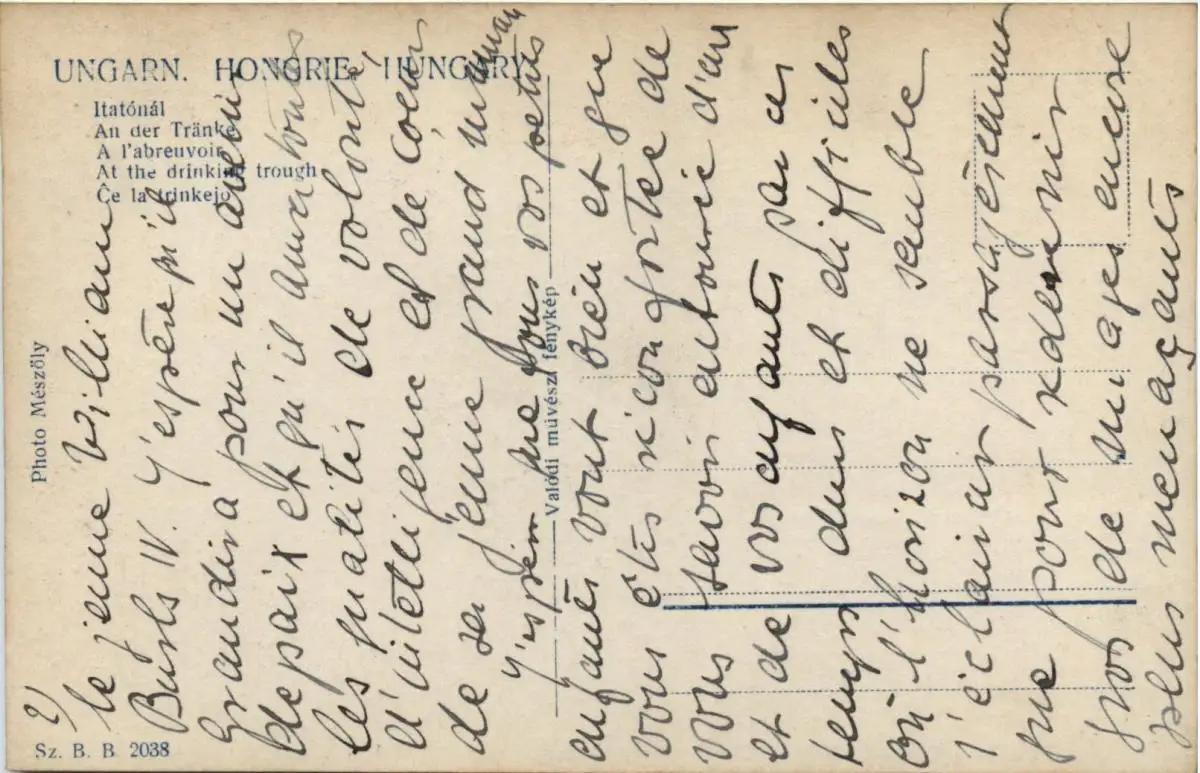 UNGARN. HONGRIE. HUNGARY.
Itatónál
An der Tränke
A l'abreuvoir
At the drinking trough
Ĉe la trinkejo
Photo Mészöly
Valódi müvészi fénykép
Sz. B. B. 2038
2)
le jeune William
Burls IV. J'espère qu'il
Grandira pour un avenir
de paix et qu'il aura toutes
les qualités de volonté
d'intelligence et de coeur
de sa jeune grand maman
J'espère que tous vos petits
enfants vont bien et que
vous êtes réconfortée de
vous savoir entourée d'eux
et de vos enfants par ces
temps durs et difficiles
où l'horizon ne semble
s'éclaircir passagèrement
que pour redevenir
gros de nuages encore
plus menaçants